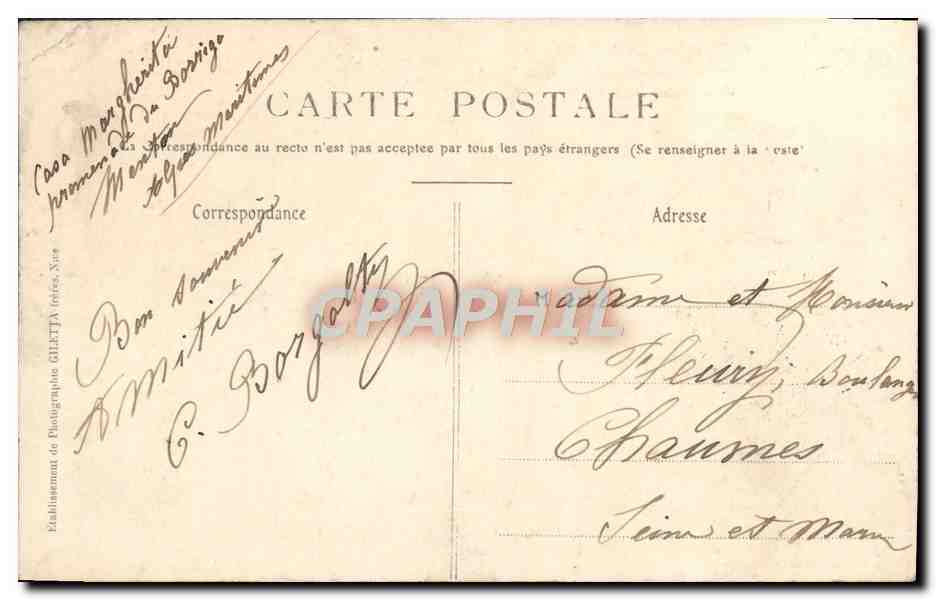 Casa Margherita
promenade du Borrigo
Menton
Alpes Maritimes
CARTE POSTALE
La Correspondance au recto n'est pas acceptée par tous les pays étrangers (Se renseigner à la Poste)
Correspondance
Bon souvenir
Amitié
C. Borgoltz
Adresse
Madame et Monsieur
Fleury, Boulang
Chaumes
Seine et Marne
Etablissement de Photographie GILETTA frères, Nice
CPAPHIL